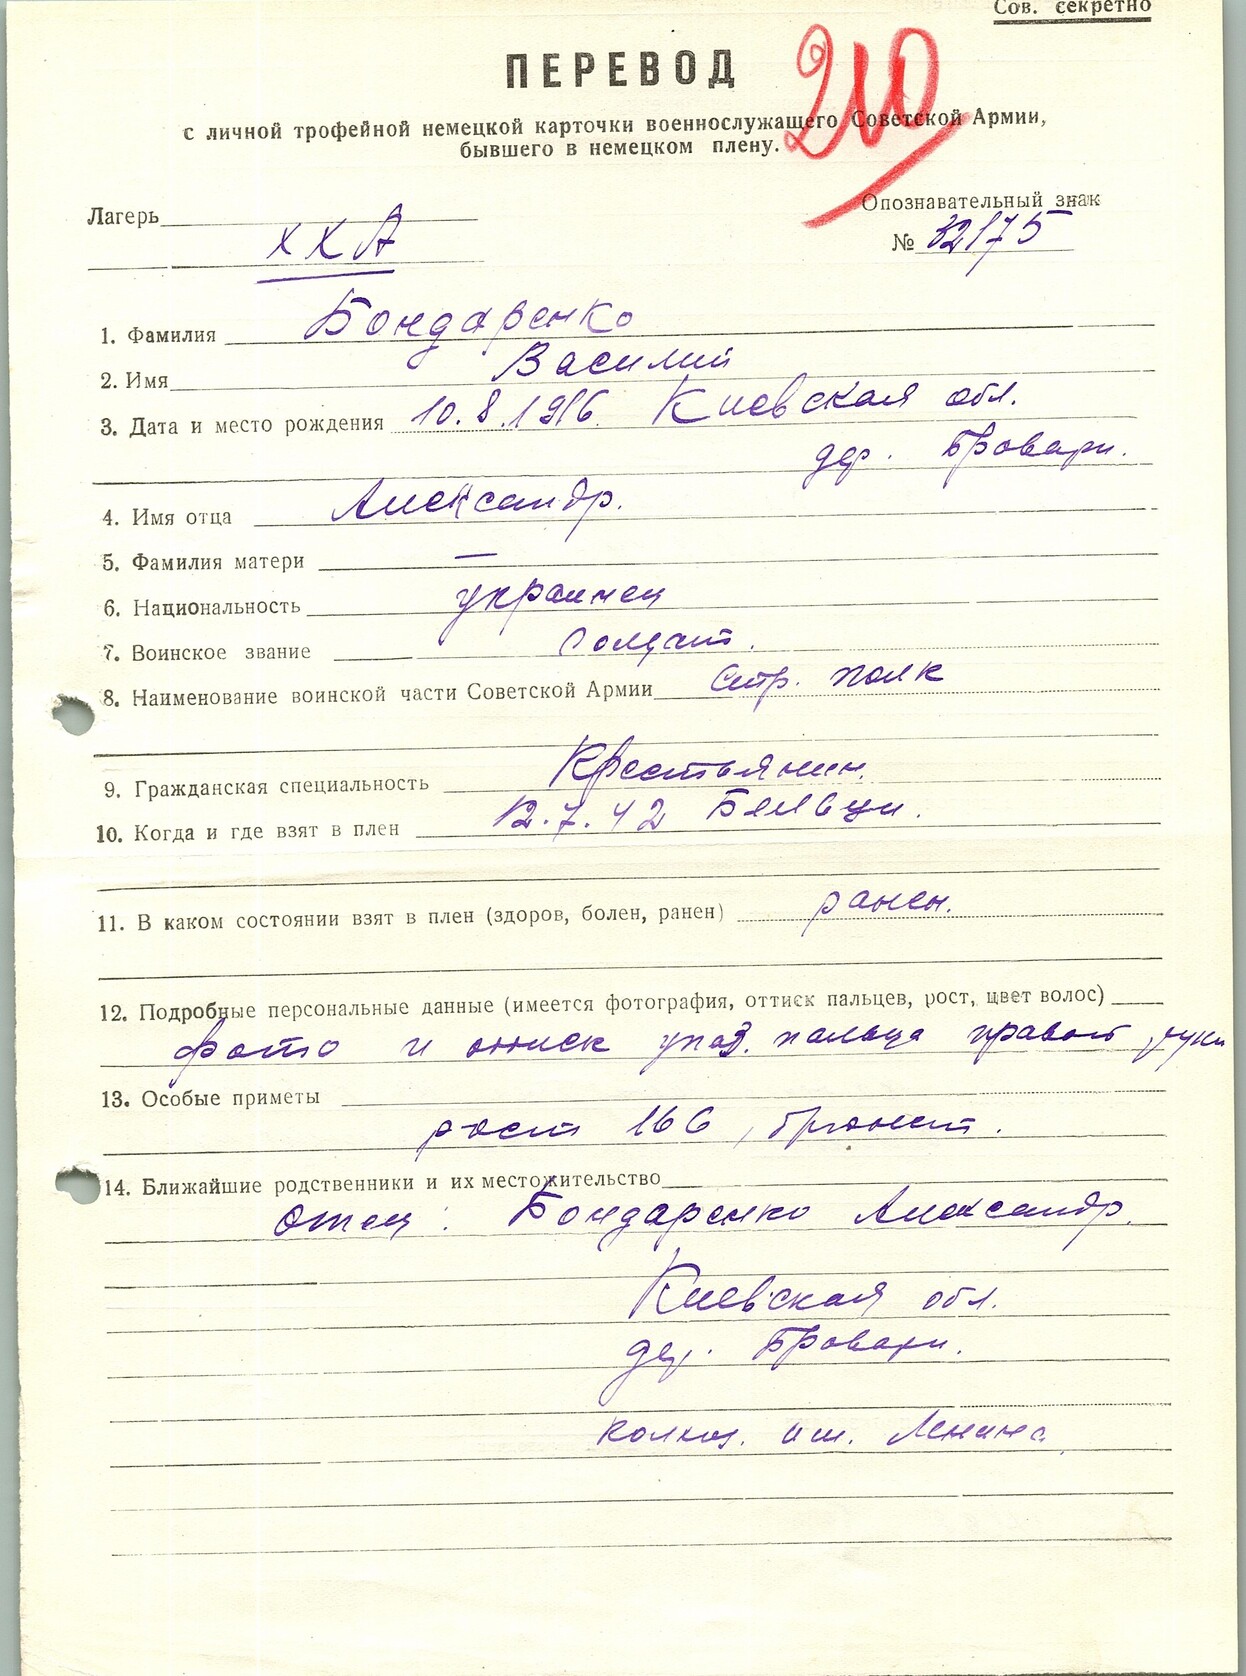 Сов. секретно
210
ПЕРЕВОД
с личной трофейной немецкой карточки военнослужащего Советской Армии,
бывшего в немецком плену.
Лагерь
Опознавательный знак
XX A
№ 32175
1. Фамилия Бондаренко
2. Имя Василий
3. Дата и место рождения 10.8.1916 Киевская обл.
дер. Бровари.
4. Имя отца Александр.
5. Фамилия матери —
6. Национальность украинец
7. Воинское звание Солдат.
8. Наименование воинской части Советской Армии Стр. полк
9. Гражданская специальность Крестьянин.
10. Когда и где взят в плен 12.7.42
11. В каком состоянии взят в плен (здоров, болен, ранен) ранен.
12. Подробные персональные данные (имеется фотография, оттиск пальцев, рост, цвет волос)
Фото и оттиск указ. пальца правой руки
13. Особые приметы
рост 166, брюнет.
14. Ближайшие родственники и их местожительство
Отец: Бондаренко Александр.
Киевская обл.
дер. Бровари.
колхоз. им. Ленина.